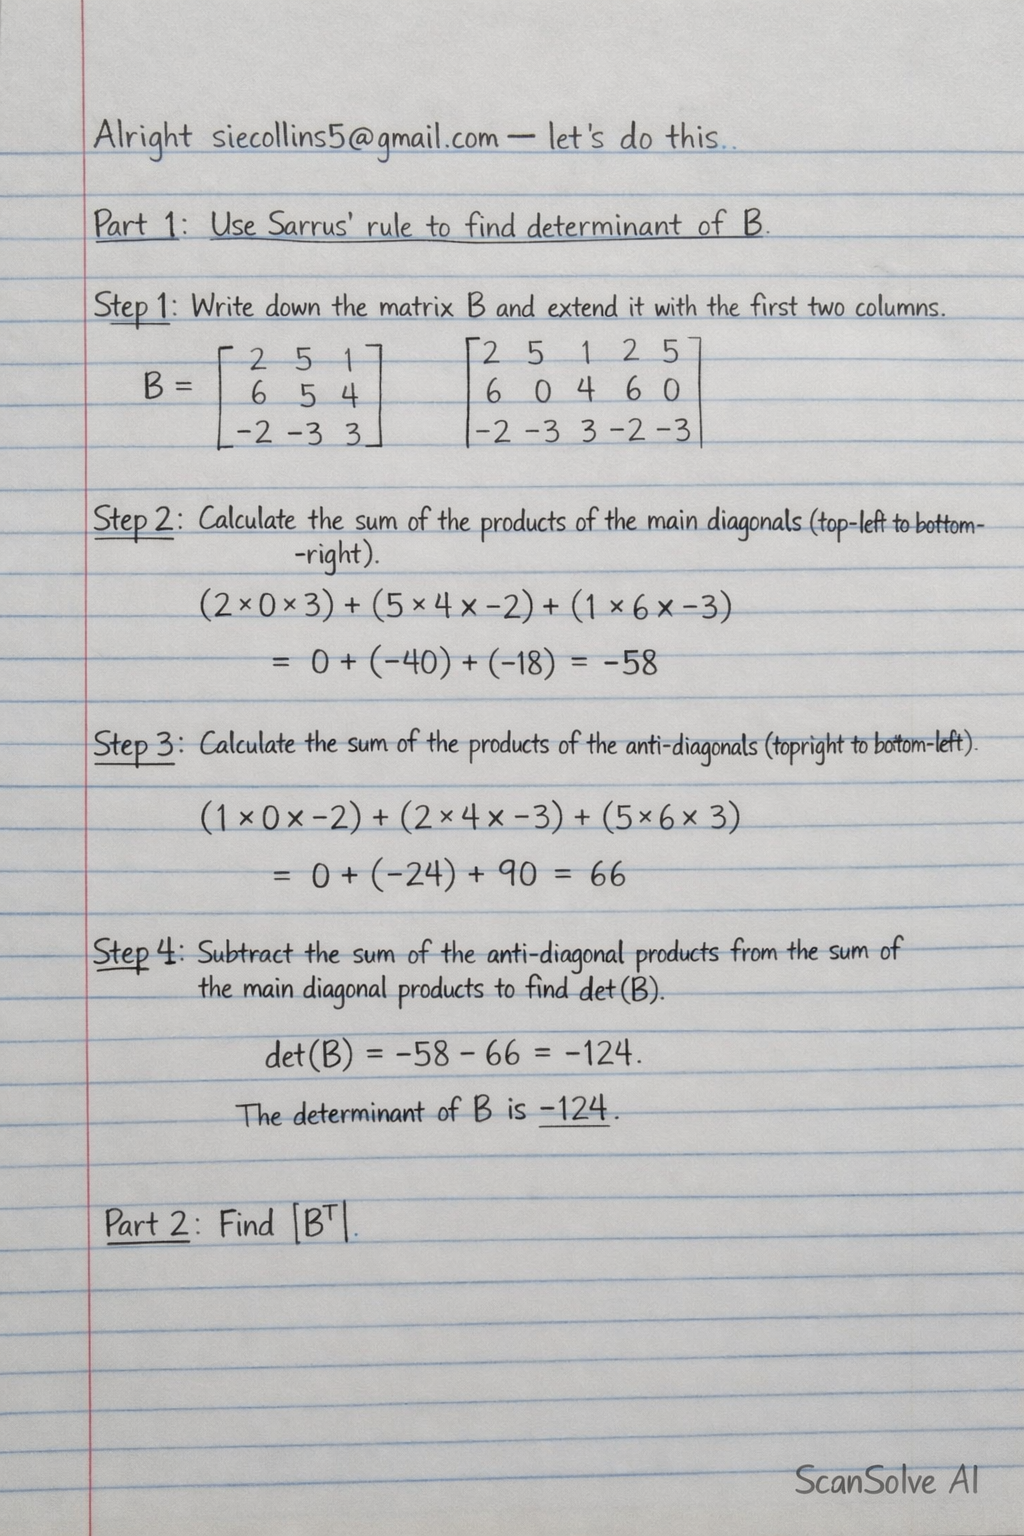 Alright siecollins5@gmail.com — let's do this..
Part 1: Use Sarrus' rule to find determinant of B.
Step 1: Write down the matrix B and extend it with the first two columns.
2 5 1 2 5 1 2 5
B = 6 5 4 6 0 4 6 0
-2 -3 3 -2 -3 3 -2 -3
Step 2: Calculate the sum of the products of the main diagonals (top-left to bottom-
-right).
(2 × 0 × 3) + (5 × 4 × -2) + (1 × 6 × -3)
= 0 + (-40) + (-18) = -58
Step 3: Calculate the sum of the products of the anti-diagonals (topright to bottom-left).
(1 × 0 × -2) + (2 × 4 × -3) + (5 × 6 × 3)
= 0 + (-24) + 90 = 66
Step 4: Subtract the sum of the anti-diagonal products from the sum of
the main diagonal products to find det(B).
det(B) = -58 - 66 = -124.
The determinant of B is -124.
Part 2: Find |Bᵀ|.
ScanSolve AI